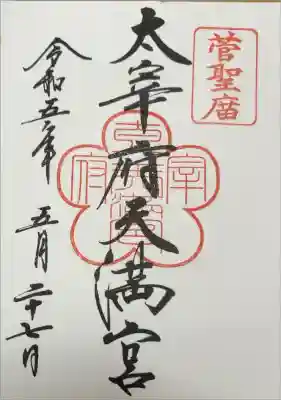 菅聖庿
太宰府天満宮
宰
府
令和五年 五月二十七日